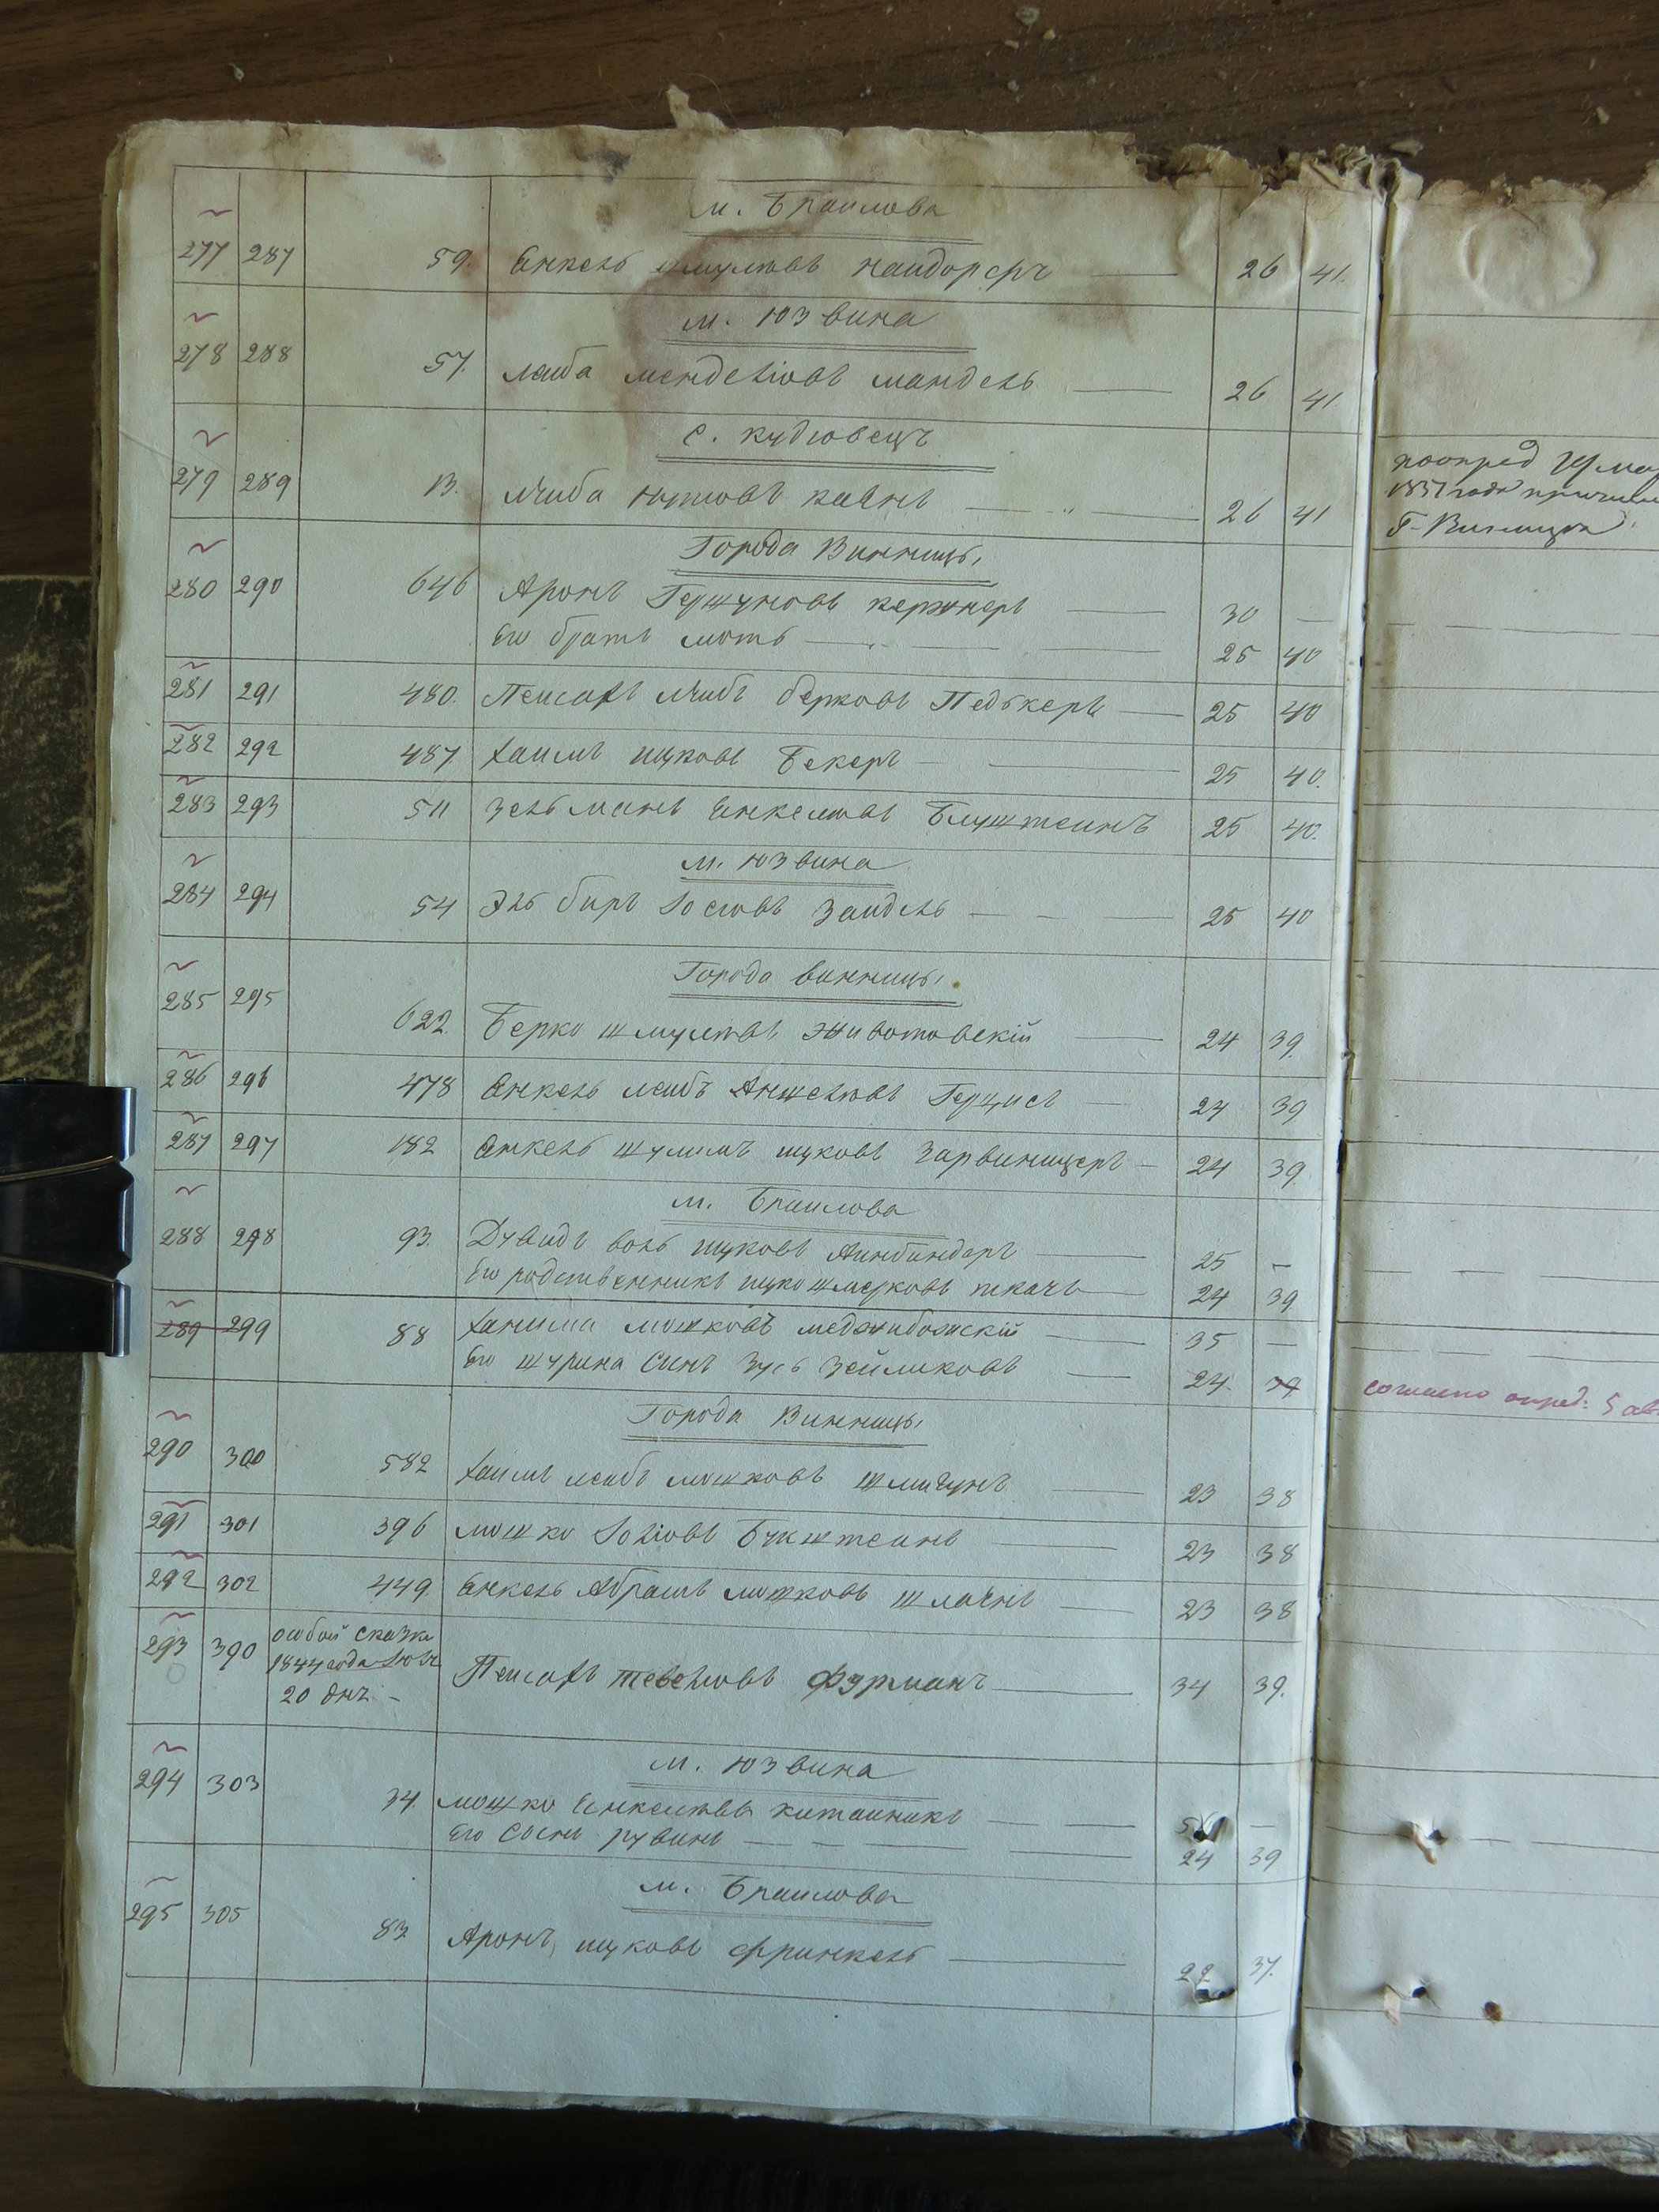 м. Браилова
277 287 59. Енкель Шмулевъ Наидорфъ — 26 41.
м. Юзвина
278 288 57. Лейба Менделіовъ Мандель — 26 41
с. Кудіовецъ
279 289 13. Лейба Каенъ — " — 26 41
Города Винницы
280 290 646 Аронъ Гершуновъ Кержнеръ — 30 —
Его братъ Мотъ — 25 40
281 291 480. Пейсахъ Лейбъ Берковъ Педькеръ — 25 40
282 292 487 Хаимъ Ицковъ Бекеръ — 25 40.
283 293 511 Зельманъ Енкелевъ Блуштеинъ 25 40.
м. Юзвина
284 294 54 Эль Биръ Іосіовъ Зайдель — 25 40
Города Винницы
285 295 622. Берко Шмулевъ Животовскій — 24 39.
286 296 478 Енкель Лейбъ Аншеліовъ Герцисъ — 24 39
287 297 182 Енкель Шулимъ Ицковъ Зарвиницеръ — 24 39
м. Браилова
288 298 93. Дувидъ Воль Ицковъ Аинбиндеръ — 25 —
Его родственникъ Ицко Шмерковъ Ткачъ — 24 39
289 299 88 Мошковъ Меджибожскій — 35 —
Его шурина синъ Зусь Зейликовъ — 24.
Города Винницы
290 300 582 Хаимъ Лейбъ Мошковъ — 23 38
291 301 396 Мошко Іоліовъ Букштеинъ — 23 38
292 302 449. Енкель Абрамъ Мошковъ — 23 38
293 390 особой сказки
1844 года
20 Пейсахъ Тевеліовъ Фурманъ — 34 39.
м. Юзвина
294 303 34. Мошко Енкелевъ Китайникъ — —
Его сынъ Рувинъ — 24 39
м. Браилова
295 305 83 Аронъ Ицковъ Френкель — 22 37.
1857 года
Г. Винницы
согласно опред. 5